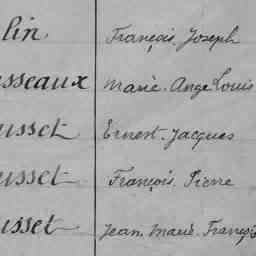 lin François. Joseph
sseaux Marie. Ange Louis
usset Ernest. Jacques
usset François. Pierre
usset Jean. Marie. François